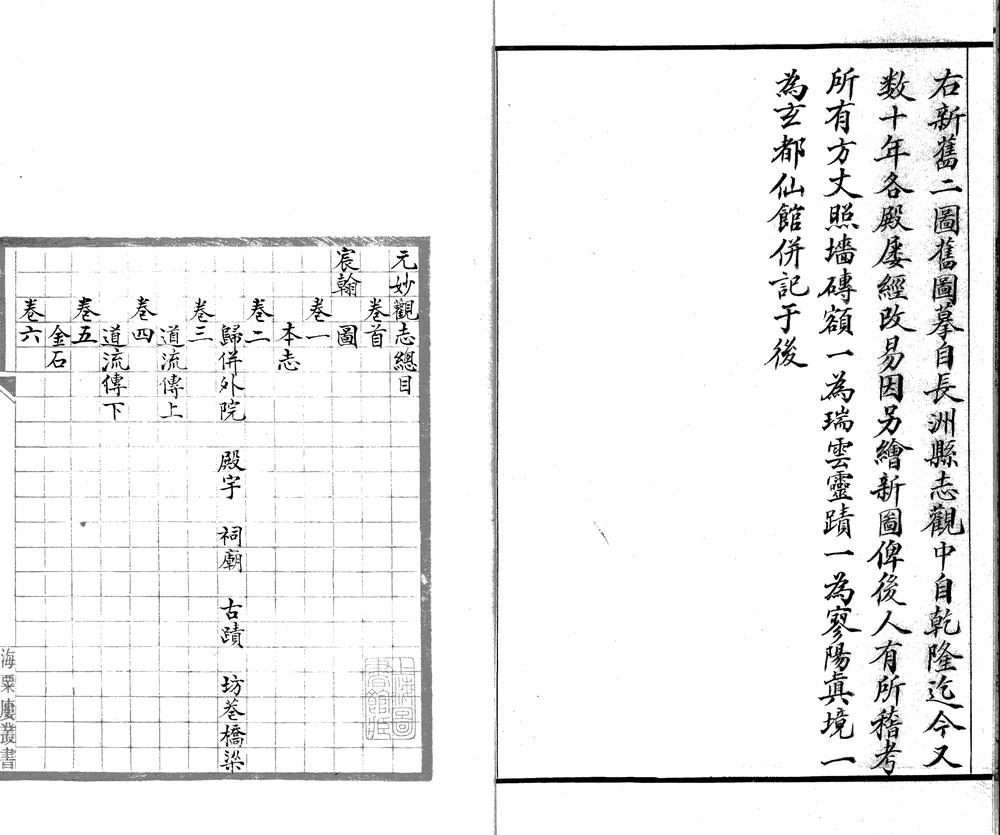 右新舊二圖舊圖摹自長洲縣志觀中自乾隆迄今又
数十年各殿屡經改易因另繪新圖俾後人有所稽考
所有方丈照墻磚額一為瑞雲靈蹟一為寥陽真境一
為玄都仙館併記于後
元妙觀志總目
卷首
宸翰
圖
卷一
本志
卷二
歸併外院 殿宇 祠廟 古蹟 坊巷橋梁
卷三
道流傳上
卷四
道流傳下
卷五
金石
卷六
海粟廔叢書
上海圖書館藏